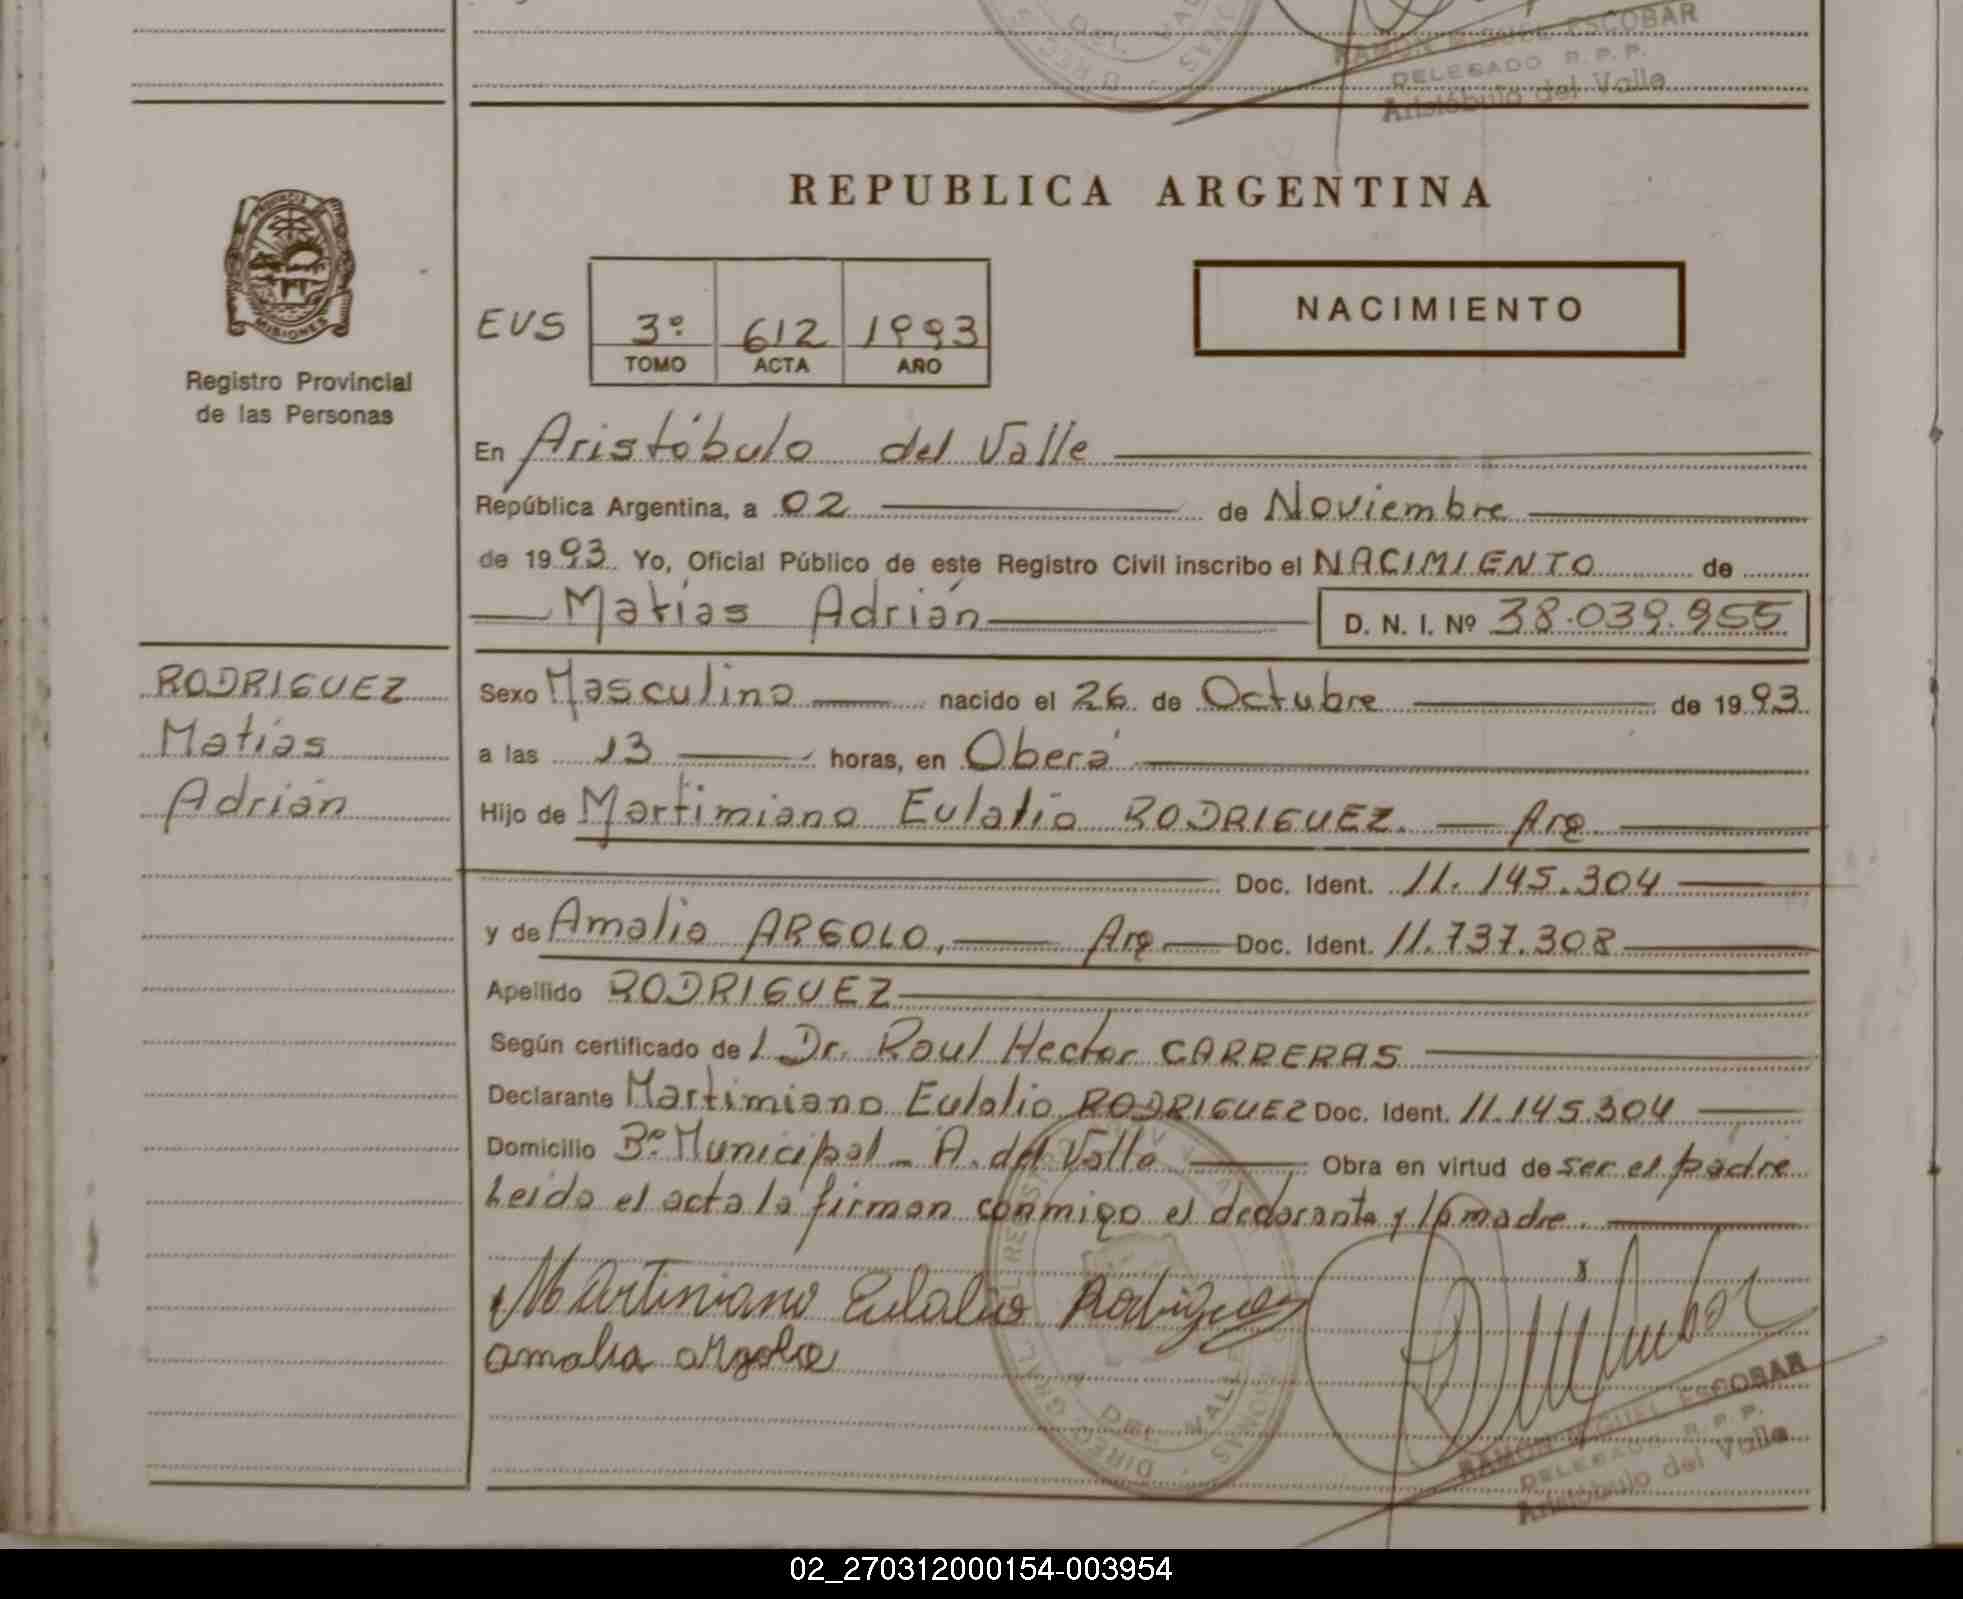 RAMON MIGUEL ESCOBAR
DELEGADO R. P. P.
Aristóbulo del Valle
REPUBLICA ARGENTINA
PROVINCIA
MISIONES
Registro Provincial
de las Personas
EVS 3º 612 1993
TOMO ACTA AÑO
NACIMIENTO
En Aristóbulo del Valle
República Argentina, a 02 de Noviembre
de 1993. Yo, Oficial Público de este Registro Civil inscribo el NACIMIENTO de
Matías Adrián D. N. I. Nº 38.039.955
RODRIGUEZ
Matías
Adrián
Sexo Masculino nacido el 26 de Octubre de 1993
a las 13 horas, en Oberá
Hijo de Martimiano Eulalio RODRIGUEZ. Arg
Doc. Ident. 11.145.304
y de Amalia ARGOLO, Arg Doc. Ident. 11.737.308
Apellido RODRIGUEZ
Según certificado de l Dr. Raul Hector CARRERAS
Declarante Martimiano Eulalio RODRIGUEZ Doc. Ident. 11.145.304
Domicilio Bº Municipal - A. del Valle Obra en virtud de ser el padre
Leida el acta la firman conmigo el declarante y la madre.
Martiniano Eulalio Rodriguez
amalia argolo
DEL VALLE
RAMON MIGUEL ESCOBAR
DELEGADO R. P. P.
Aristóbulo del Valle
02_270312000154-003954